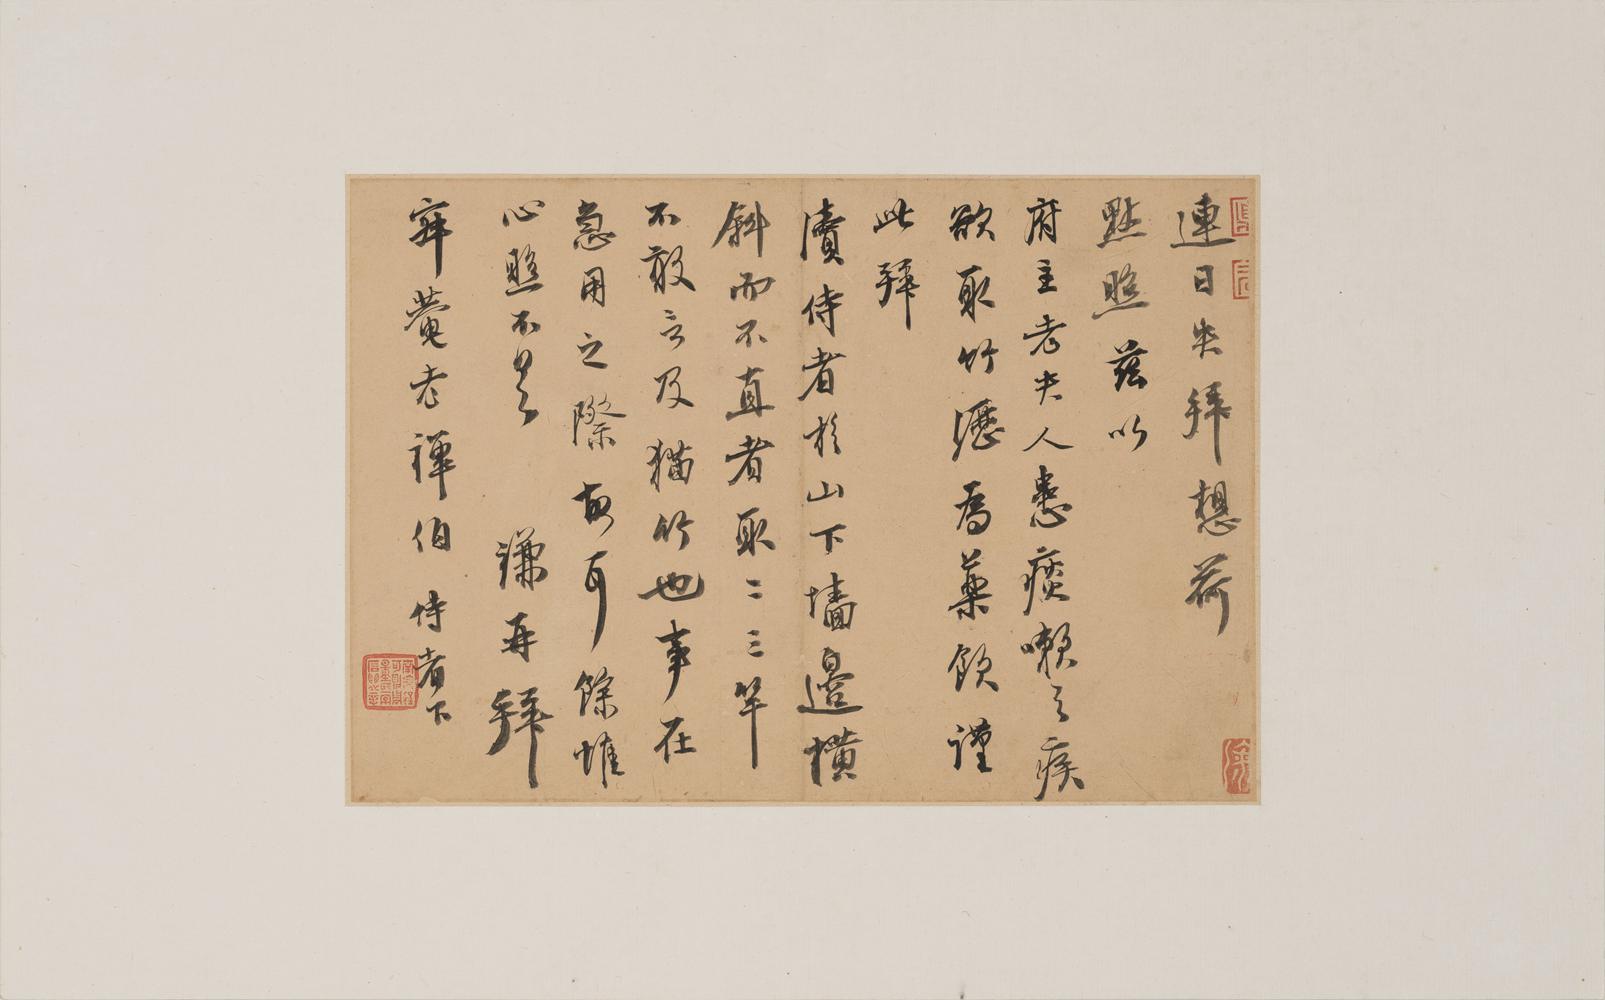 連日失拜想荷
點照茲以
府主老夫人患痰嗽之疾
欲取竹瀝為藥飲謹
此拜
瀆侍者於山下墻邊橫
斜而不直者取二三竿
不敢言及猫竹也事在
急用之際故耳餘惟
心照不具 謙再拜
宰菴老禪伯侍者下